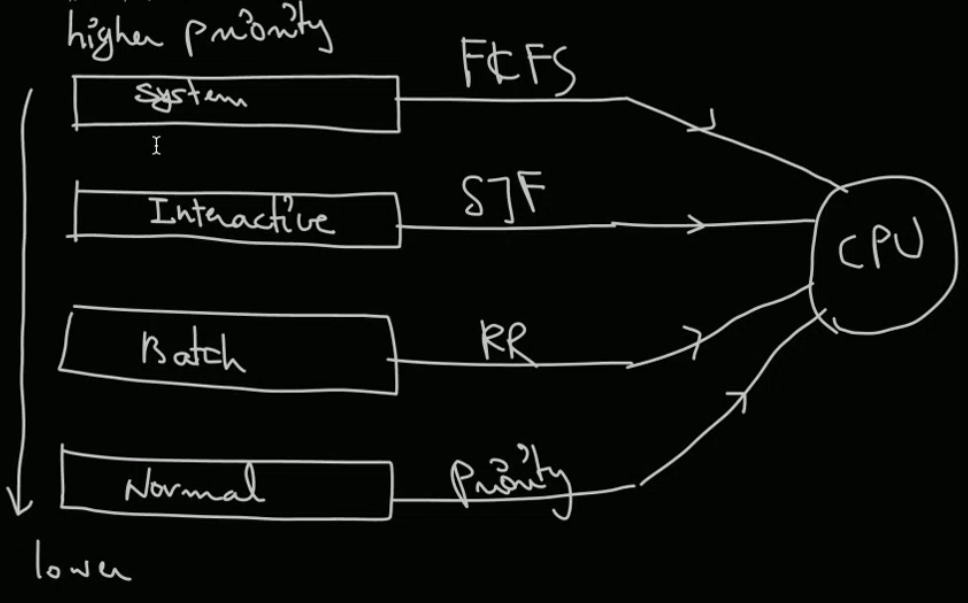 higher priority
System
FCFS
Interactive
SJF
CPU
Batch
RR
Normal
Priority
lower